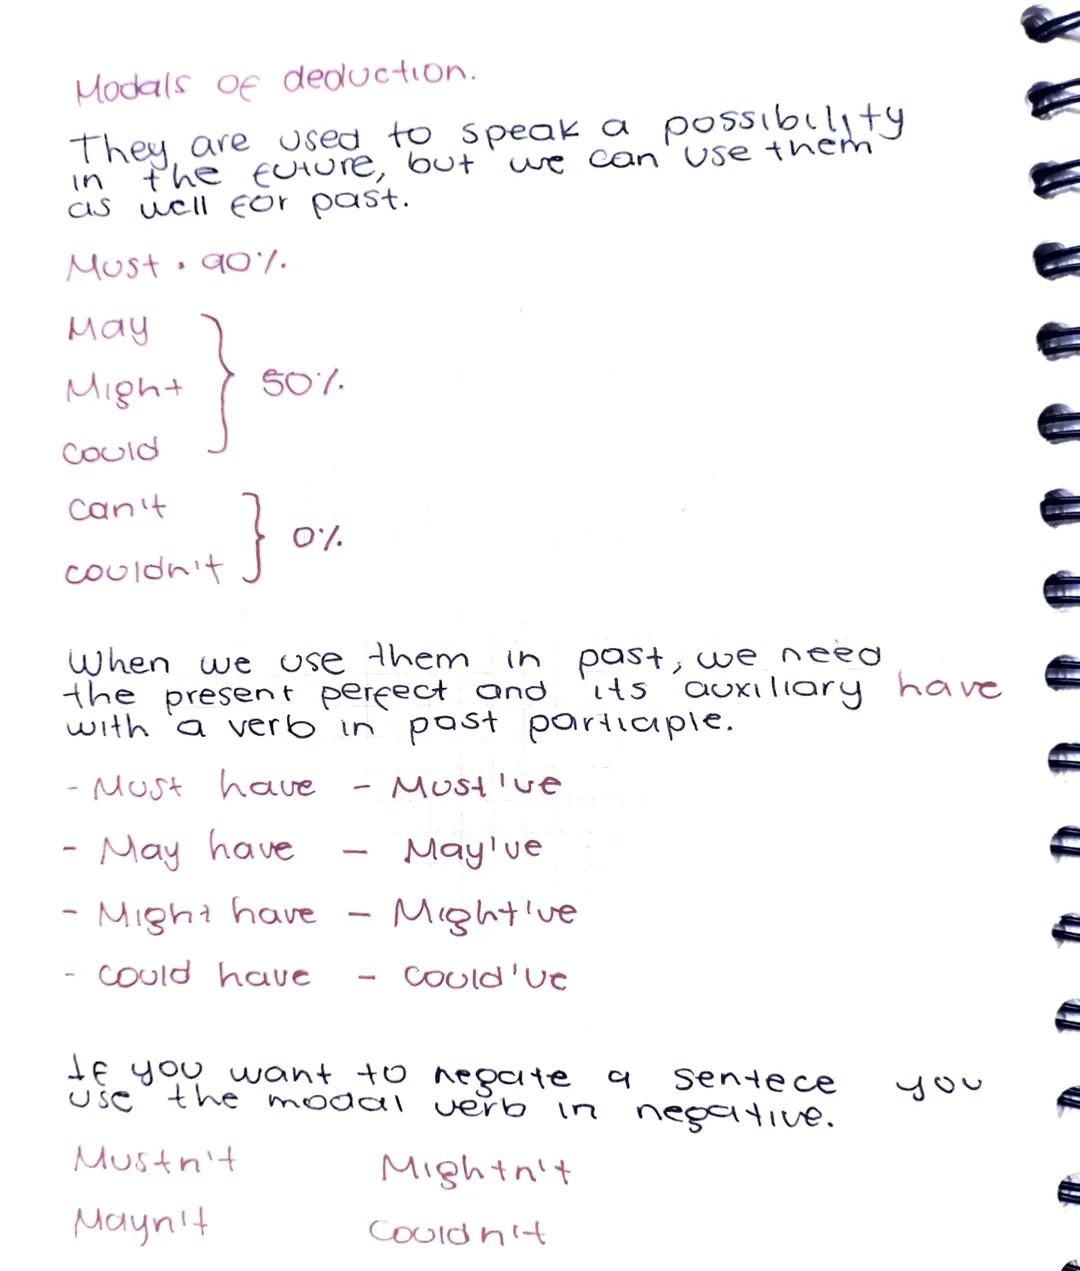 Modals of deduction.
They are used to speak a possibility
in the future, but we can use them
as well for past.
Must • 90%
May
Might
Could
} 50%
can't
couldn't
} 0%
When we use them in past, we need
the present perfect and its auxiliary have
with a verb in past participle.
- Must have - Must've
- May have - May've
- Might have - Might've
- could have - Could've
If you want to negate a sentece you
use the modal verb in negative.
Mustn't Mightn't
Mayn't Couldn't